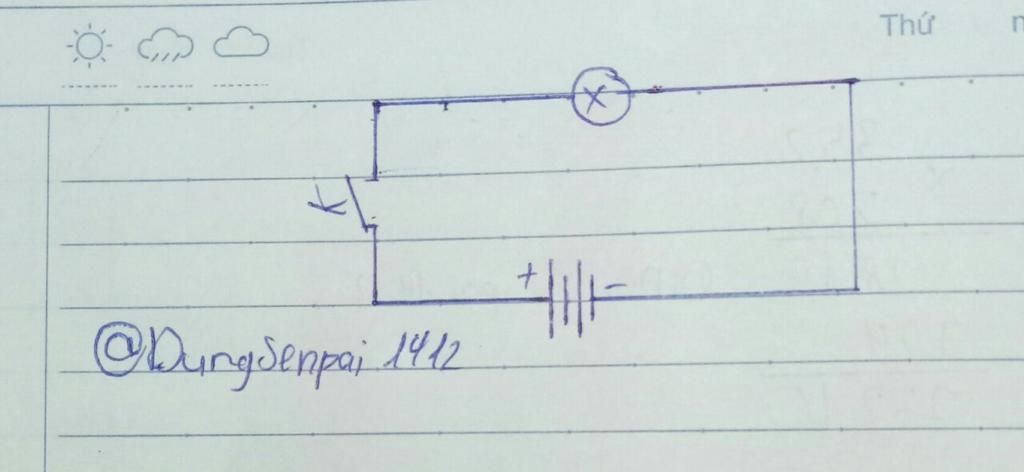 Thứ
K
+ -
@DungSenpai 1412